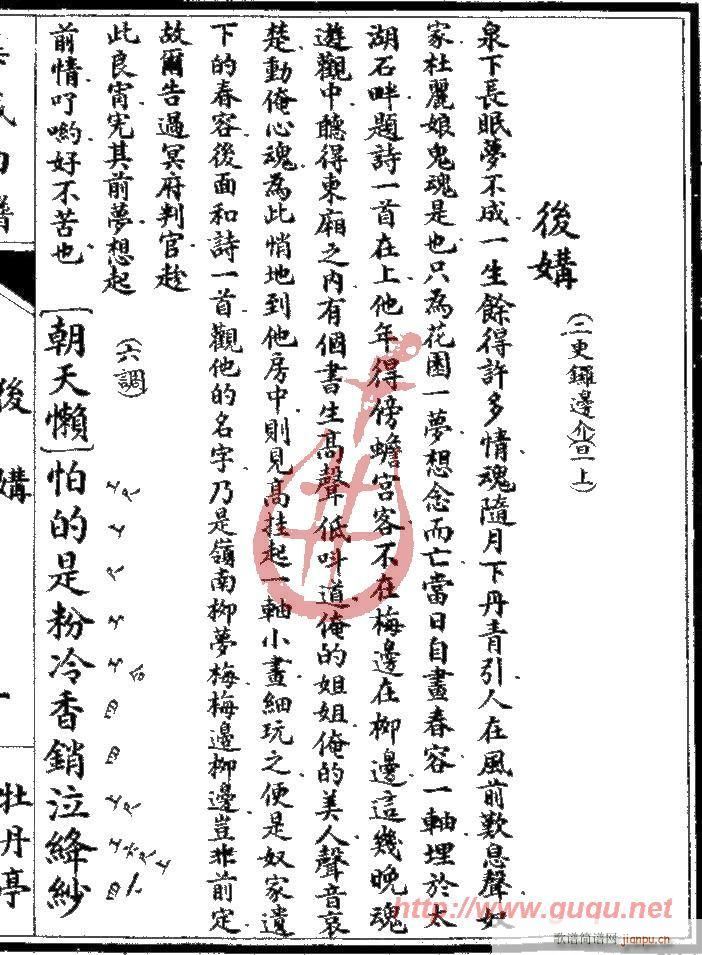 後媾
(二更鑼邊介旦上)
泉下長眠夢不成一生餘得許多情魂隨月下丹青引人在風前歎息聲奴
家杜麗娘鬼魂是也只為花園一夢想念而亡當日自畫春容一軸埋於太
湖石畔題詩一首在上他年得傍蟾宮客不在梅邊在柳邊這幾晚魂
遊觀中聽得東廂之內有個書生高聲低叫道俺的姐姐俺的美人聲音哀
楚動俺心魂為此悄地到他房中則見高挂起一軸小畫細玩之便是奴家遺
下的春容後面和詩一首觀他的名字乃是嶺南柳夢梅梅邊柳邊豈非前定
故爾告過冥府判官趁
此良宵完其前夢想起
前情叮喲好不苦也
(六調)
[朝天懶]怕的是粉冷香銷泣絳紗
後媾
一
牡丹亭
http://www.guqu.net
歌谱简谱网
jianpu.cn